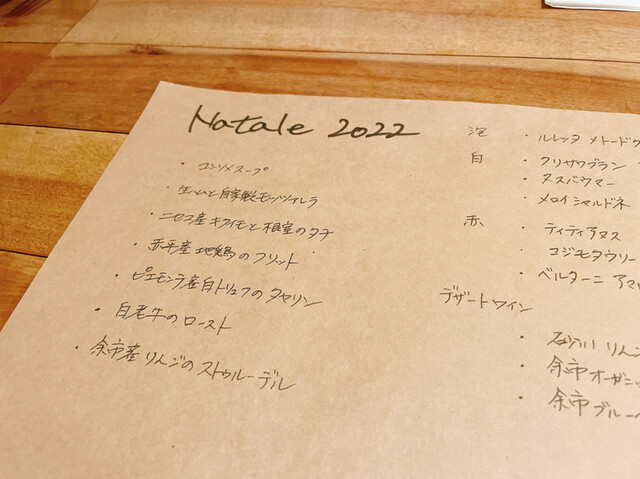 Natale 2022
・コンソメスープ
・生ハムと自家製モッツァレラ
・ニセコ産キクイモと根室のタチ
・赤平産地鶏のフリット
・ピエモンテ産白トリュフのタヤリン
・白老牛のロースト
・余市産りんごのストゥルーデル
泡 ・ルレッタ メトード
白 ・クリサワブラン
・ヌスバウマー
・メロイ シャルドネ
赤 ・ティティアヌス
コジモタウリー
・ベルターニ アマ
デザートワイン
・りんご
・余市オーガニッ
・余市ブルーベ